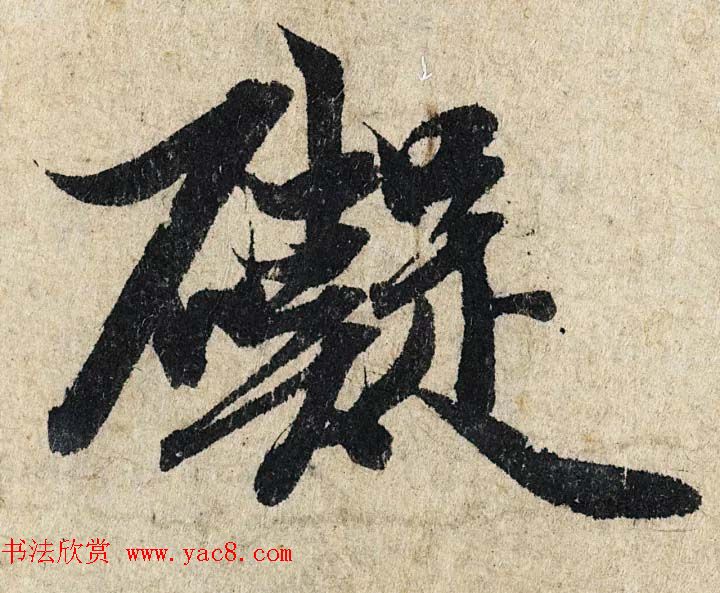 礙
书法欣赏 www.yac8.com